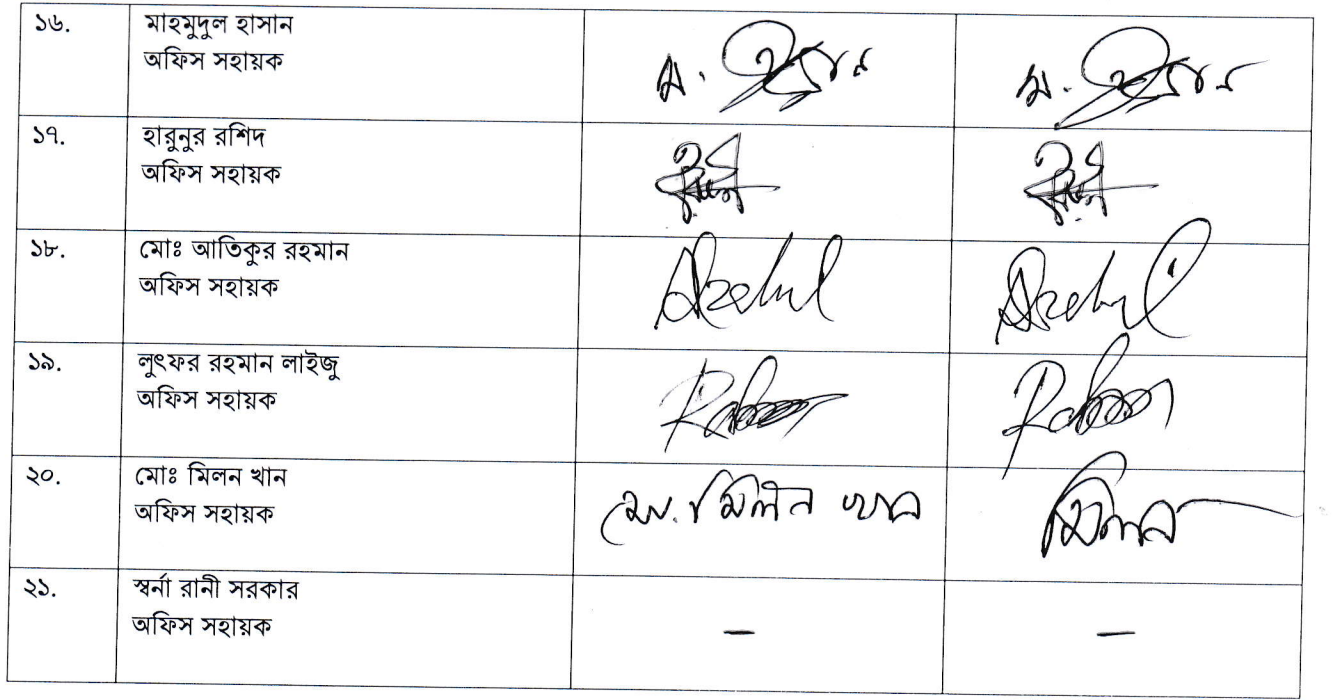 ১৬. মাহমুদুল হাসান
অফিস সহায়ক
ম. হাসান ম. হাসান
১৭. হারুনুর রশিদ
অফিস সহায়ক
১৮. মোঃ আতিকুর রহমান
অফিস সহায়ক
১৯. লুৎফর রহমান লাইজু
অফিস সহায়ক
২০. মোঃ মিলন খান
অফিস সহায়ক
মো. মিলন খান মিলন
২১. স্বর্না রানী সরকার
অফিস সহায়ক
– –